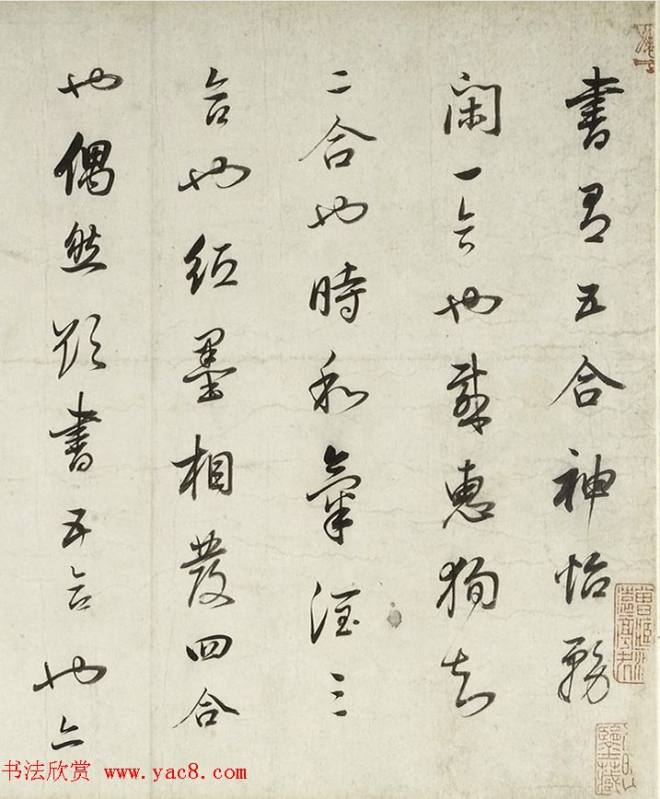 書有五合神怡務
閑一合也感惠徇知
二合也時和氣潤三
合也紙墨相發四合
也偶然欲書五合也亦
书法欣赏 www.yac8.com